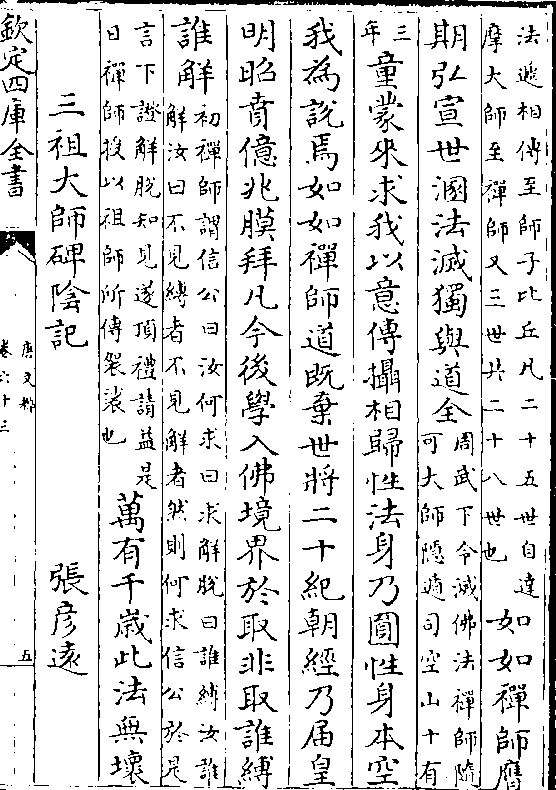 法遞相傳至師子比丘凡二十五世自達
摩大師至禪師又三世共二十八世也
如如禪師膺
期弘宣世溷法滅獨與道全
周武下令滅佛法禪師隨
可大師隱遁司空山十有
三
年
童蒙來求我以意傳攝相歸性法身乃圓性身本空
我為說焉如如禪師道既棄世將二十紀朝經乃届皇
明昭賁億兆膜拜凡今後學入佛境界於取非取誰縛
誰解
初禪師謂信公曰汝何求曰求解脫曰誰縛汝誰
解汝曰不見縛者不見解者然則何求信公於是
言下證解脫知見遂頂禮請益是
日禪師授以祖師所傳袈裟也
萬有千歲此法無壞
三祖大師碑陰記
張彥遠
欽定四庫全書
唐文粹
卷六十三
五